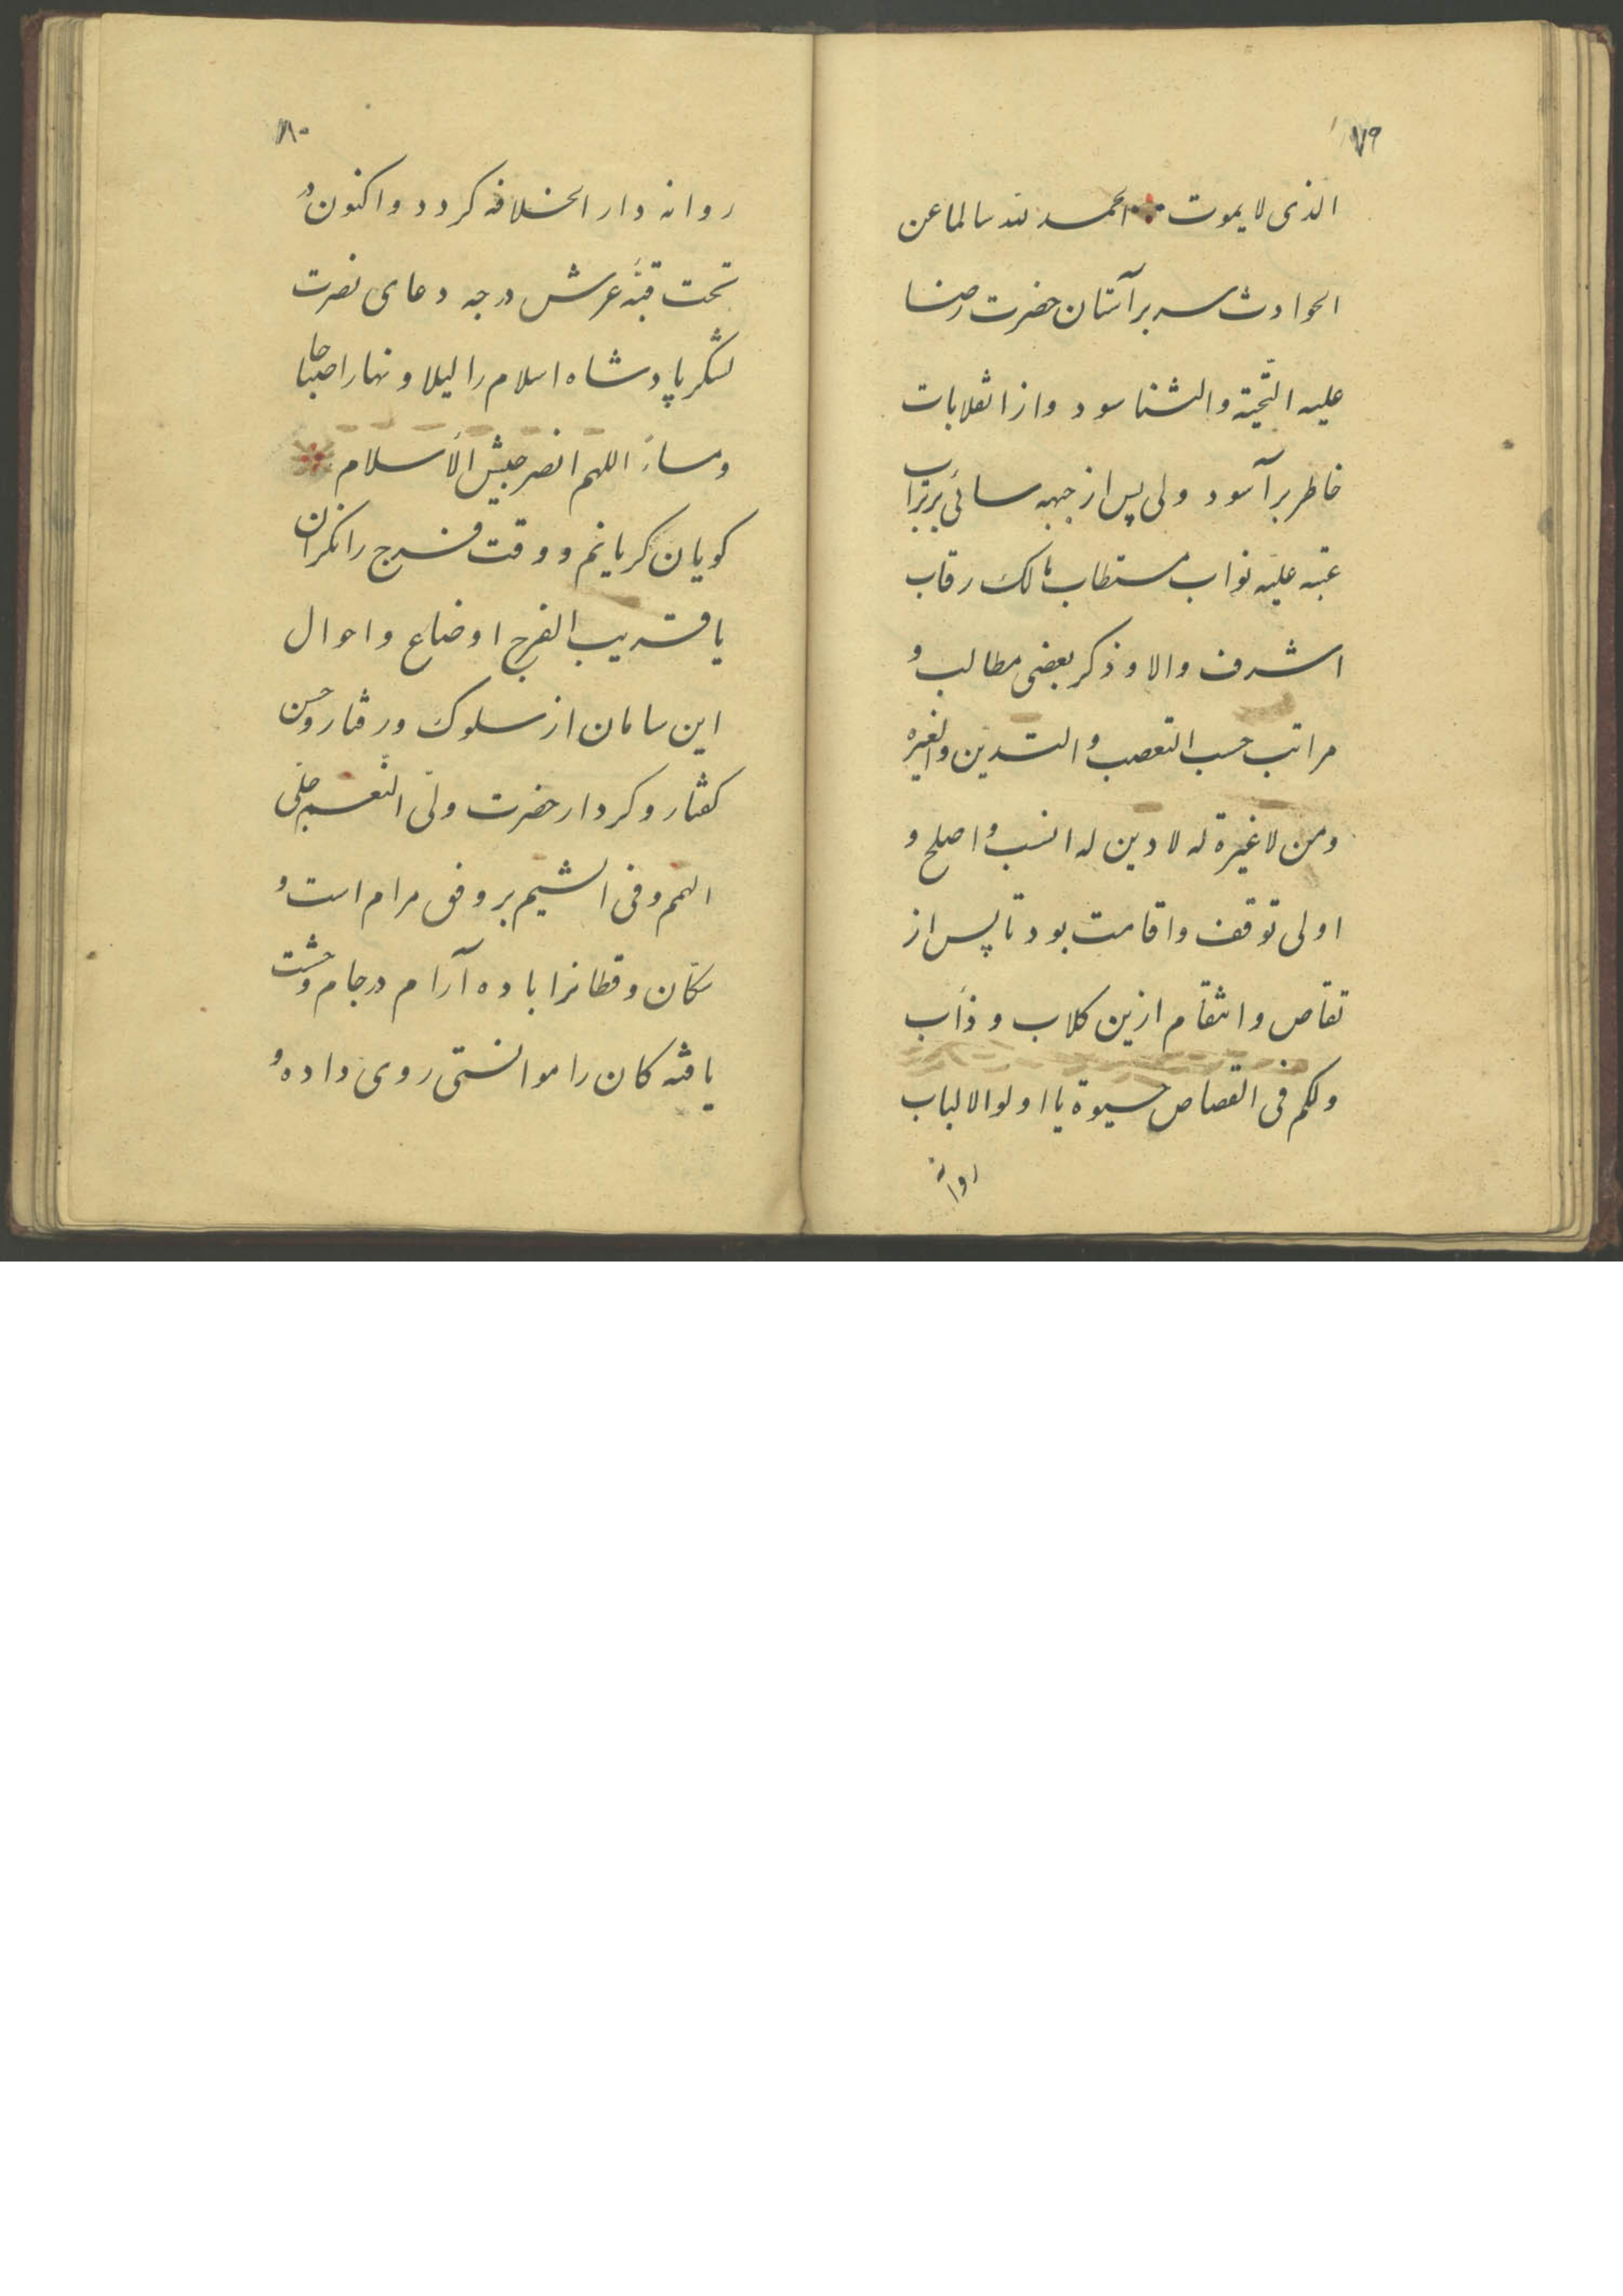 ۷۹
الذی لا یموت الحمد لله سالما عن
الحوادث سر بر آستان حضرت رضا
علیه التّحیّة والثنا سود واز انقلابات
خاطر بر آسود ولی پس از جبهه سائی بر تراب
عتبه علیّه نوّاب مستطاب مالک رقاب
اشرف والا و ذکر بعضی مطالب و
مراتب حسب التعصب و التدین والغیره
ومن لا غیرة له لا دین له انسب و اصلح و
اولی توقف واقامت بود تا پس از
تقاص و انتقام ازین کلاب و ذأب
ولکم فی القصاص حیوة یا اولو الالباب
روانه
۸۰
روانه دار الخلافه کردد و اکنون در
تحت قبّهٔ عرش درجه دعای نصرت
لشکر پادشاه اسلام را لیلا و نهارا صباحا
ومساءً اللهم انصر جیش الأسلام
کویان کریانم و وقت فرج را نکران
یا قریب الفرج اوضاع و احوال
این سامان از سلوک ورفتار وحسن
کفتار و کردار حضرت ولیّ النّعم علی
الهمم وفی الشیم بر وفق مرام است و
سکّان و قطانرا باده آرام در جام وحشت
یافته کان را موانستی روی داده و